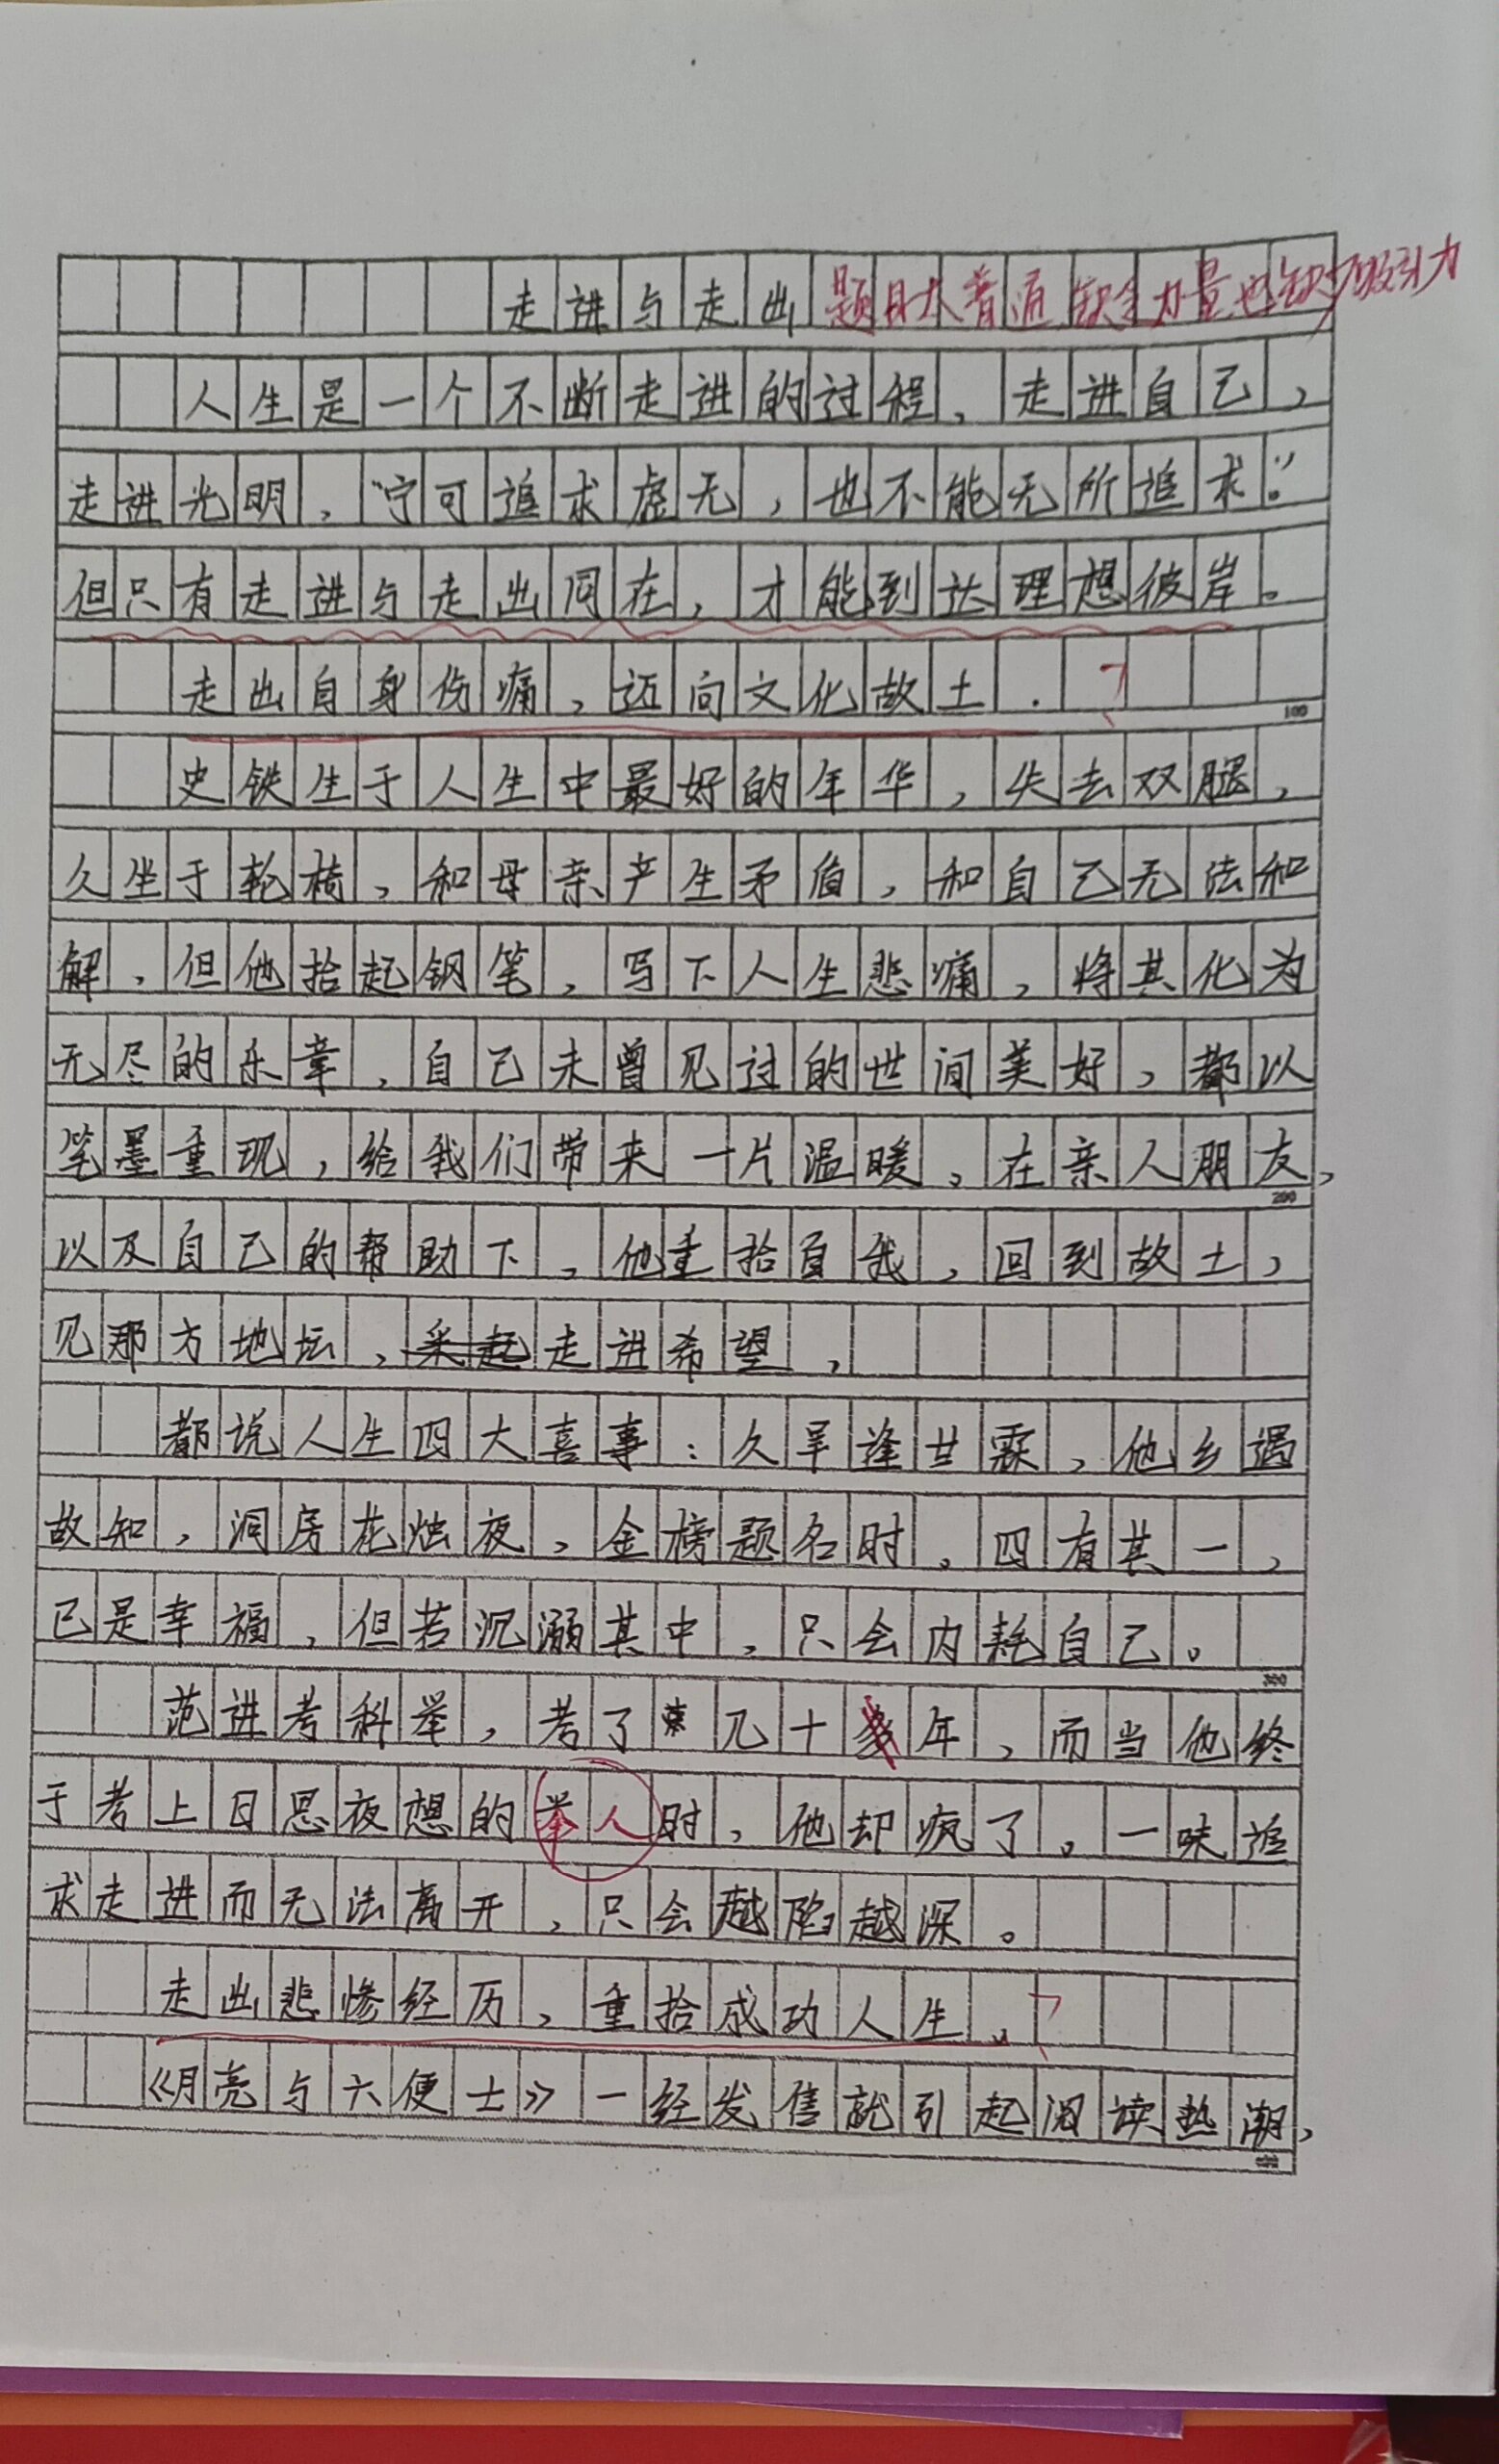 走进与走出 题目太普通缺乏力量也缺乏吸引力
人生是一个不断走进的过程，走进自己，
走进光明，“宁可追求虚无，也不能无所追求。”
但只有走进与走出同在，才能到达理想彼岸。
走出自身伤痛，迈向文化故土．？
100
史铁生于人生中最好的年华，失去双腿，
久坐于轮椅，和母亲产生矛盾，和自己无法和
解，但他拾起钢笔，写下人生悲痛，将其化为
无尽的乐章，自己未曾见过的世间美好，都以
笔墨重现，给我们带来一片温暖，在亲人朋友，
200
以及自己的帮助下，他重拾自我，回到故土，
见那方地坛，采起走进希望，
都说人生四大喜事：久旱逢甘霖，他乡遇
故知，洞房花烛夜，金榜题名时，四有其一，
已是幸福，但若沉溺其中，只会内耗自己。
300
范进考科举，考了几十多年，而当他终
于考上日思夜想的举人时，他却疯了。一味追
求走进而无法离开，只会越陷越深。
走出悲惨经历，重拾成功人生。？
《月亮与六便士》一经发售就引起阅读热潮，
400